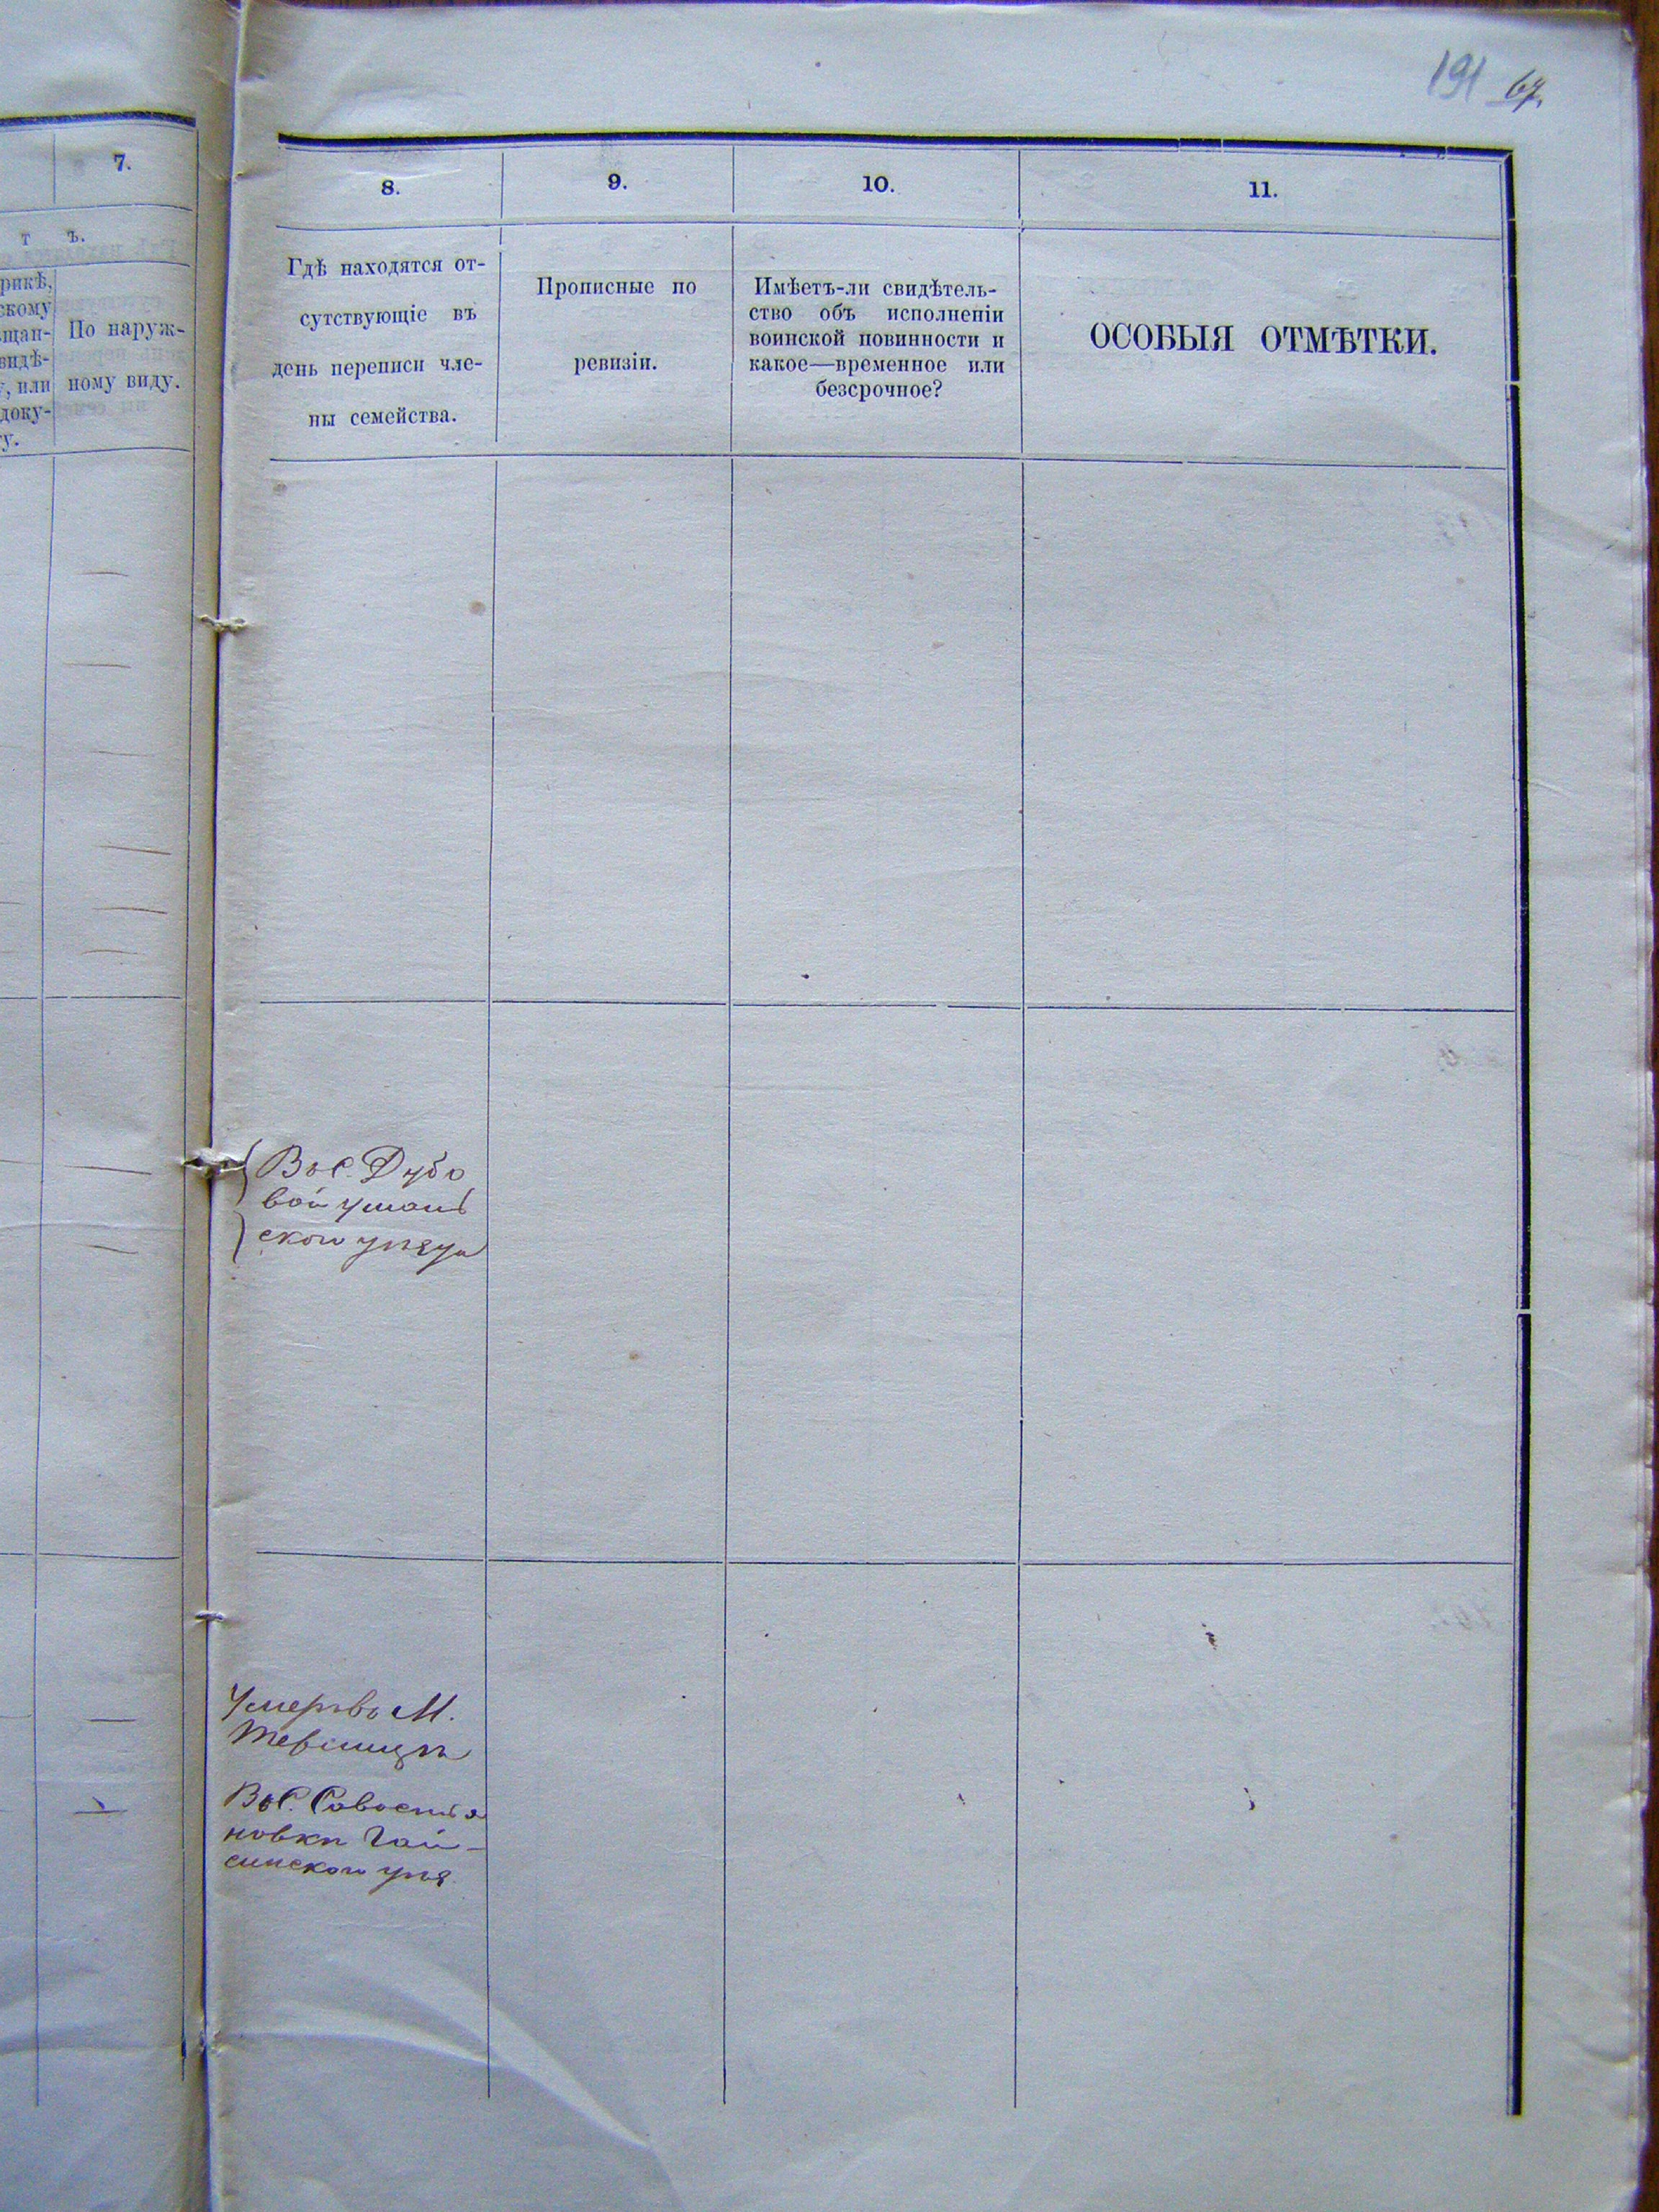 191 67.
7.
т ъ.
рикѣ,
скому
щан-
видѣ-
, или
доку-
у.
По наруж-
ному виду.
8.
9.
10.
11.
Гдѣ находятся от-
сутствующіе въ
день переписи чле-
ны семейства.
Прописные по
ревизіи.
Имѣетъ-ли свидѣтель-
ство объ исполненіи
воинской повинности и
какое—временное или
безсрочное?
ОСОБЫЯ ОТМѢТКИ.
Въ С. Дубо
вой уман
ского уѣзда
Умеръ въ М.
Въ С. Савостья
новки Гай-
синского уѣз